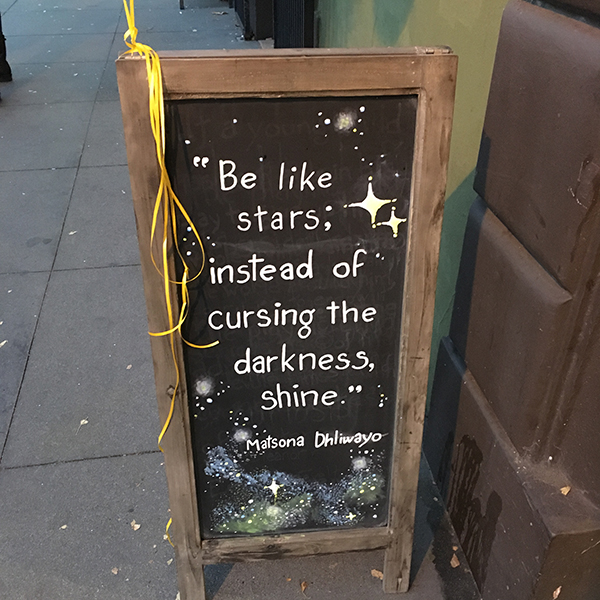 “Be like
stars;
instead of
cursing the
darkness,
shine.”
Matsona Dhliwayo